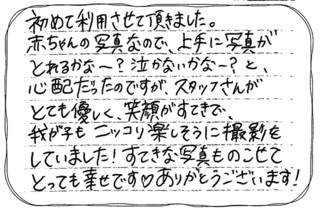 初めて利用させて頂きました。
赤ちゃんの写真なので、上手に写真が
とれるかな〜?泣かないかな〜?と、
心配だったのですが、スタッフさんが
とても優しく、笑顔がすてきで、
我が子もニッコリ楽しそうに撮影を
していました!すてきな写真ものこせて
とっても幸せです♡ありがとうございます!